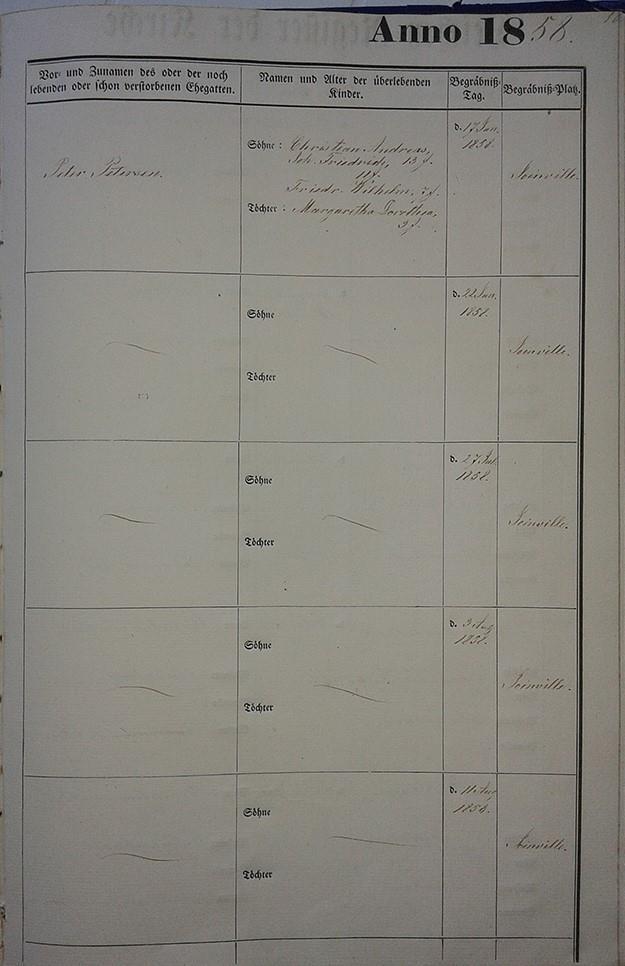 Anno 1858.
Vor- und Zunamen des oder der noch
lebenden oder schon verstorbenen Ehegatten.
Namen und Alter der überlebenden
Kinder.
Begräbniß-
Tag.
Begräbniß-Platz.
Peter Petersen.
Söhne : Christian Andreas,
Joh. Friedrich, 13 J.
11 J.
Friedr. Wilhelm, 7 J.
Töchter : Margaretha Dorothea,
3 J.
d. 17 Jan.
1858.
Joinville.
Söhne
Töchter
d. 22 Jan.
1858.
Joinville.
Söhne
Töchter
d. 27
1858.
Joinville.
Söhne
Töchter
d. 3 Aug
1858.
Joinville.
Söhne
Töchter
d. 11 Aug
1858.
Joinville.